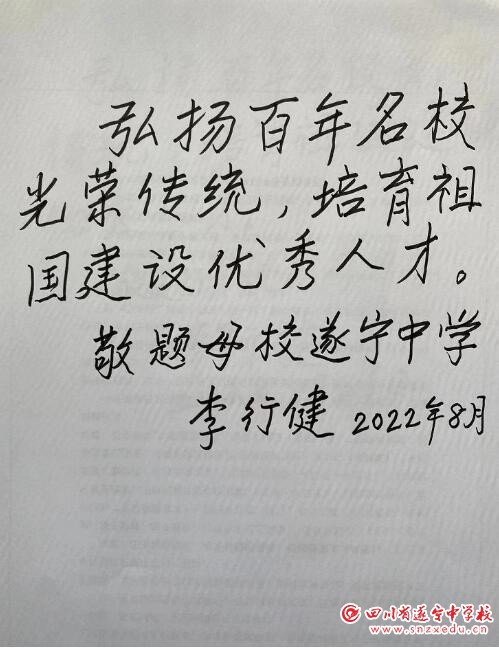 弘扬百年名校
光荣传统,培育祖
国建设优秀人才。
敬题母校遂宁中学
李行健 2022年8月
四川省遂宁中学校
www.snzxedu.cn